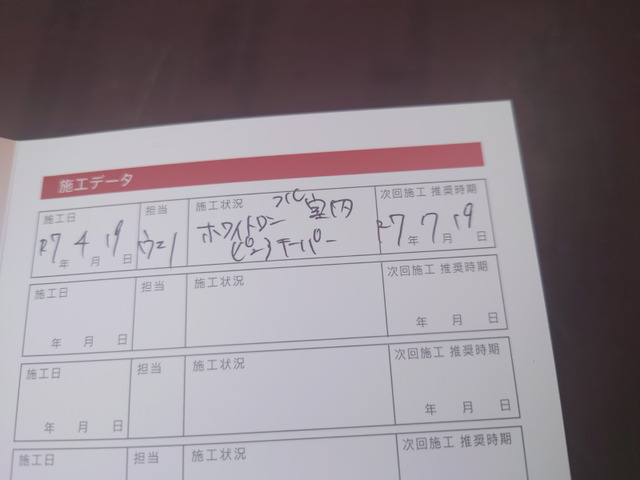 施工データ
施工日 担当 施工状況 次回施工 推奨時期
R7年4月19日 室内 R7年7月19日
ホワイト
テーパー
施工日 担当 施工状況 次回施工 推奨時期
年 月 日 年 月 日
施工日 担当 施工状況 次回施工 推奨時期
年 月 日 年 月 日
施工日 担当 施工状況 次回施工 推奨時期